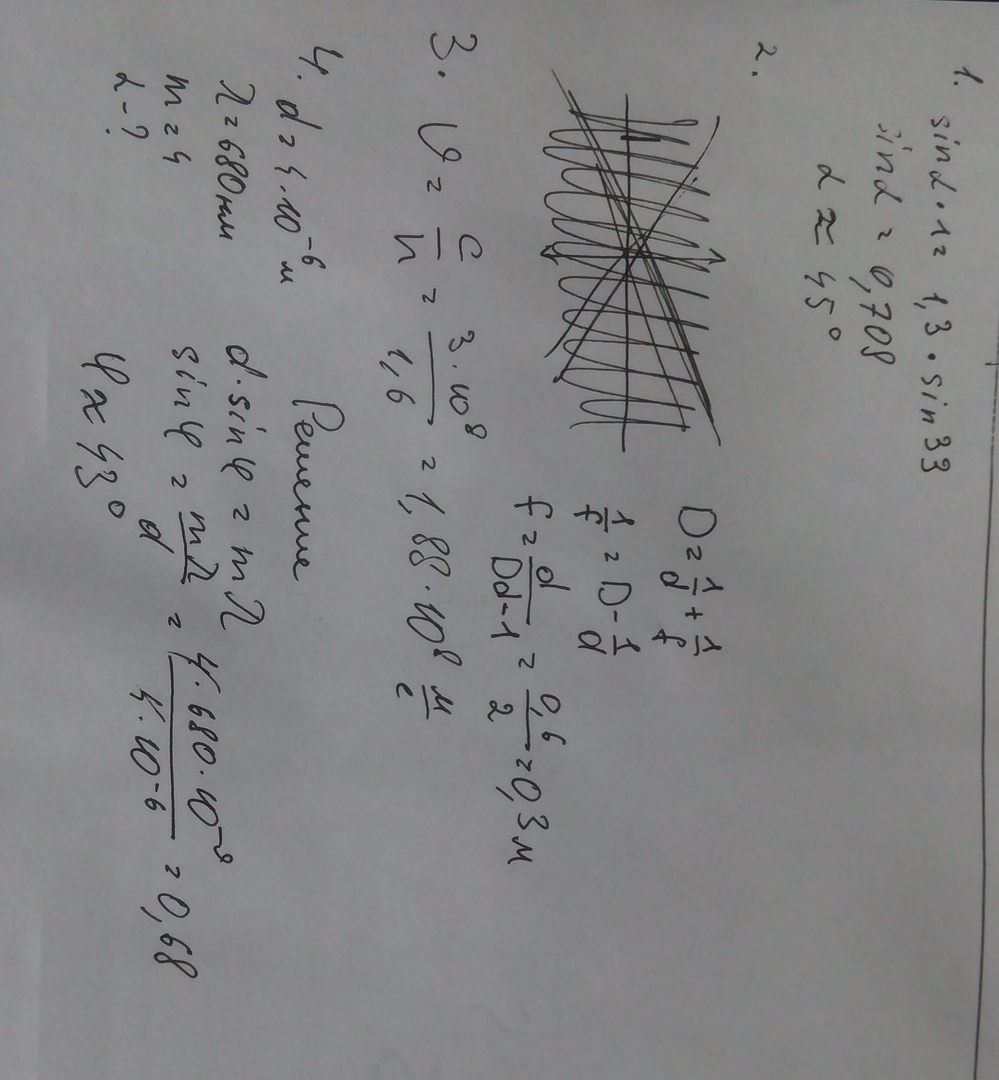 1. sinα · 1 = 1,3 · sin 33
sinα = 0,708
α ≈ 45°
2.
D = 1/d + 1/f
1/f = D - 1/d
f = d/(Dd-1) = 0,6/2 = 0,3 м
3. υ = c/n = 3·10⁸/1,6 = 1,88·10⁸ м/с
4. d = 4·10⁻⁶ м
λ = 680 нм
m = 4
α - ?
Решение
d·sinφ = mλ
sinφ = mλ/d = 4·680·10⁻⁹/4·10⁻⁶ = 0,68
φ ≈ 43°